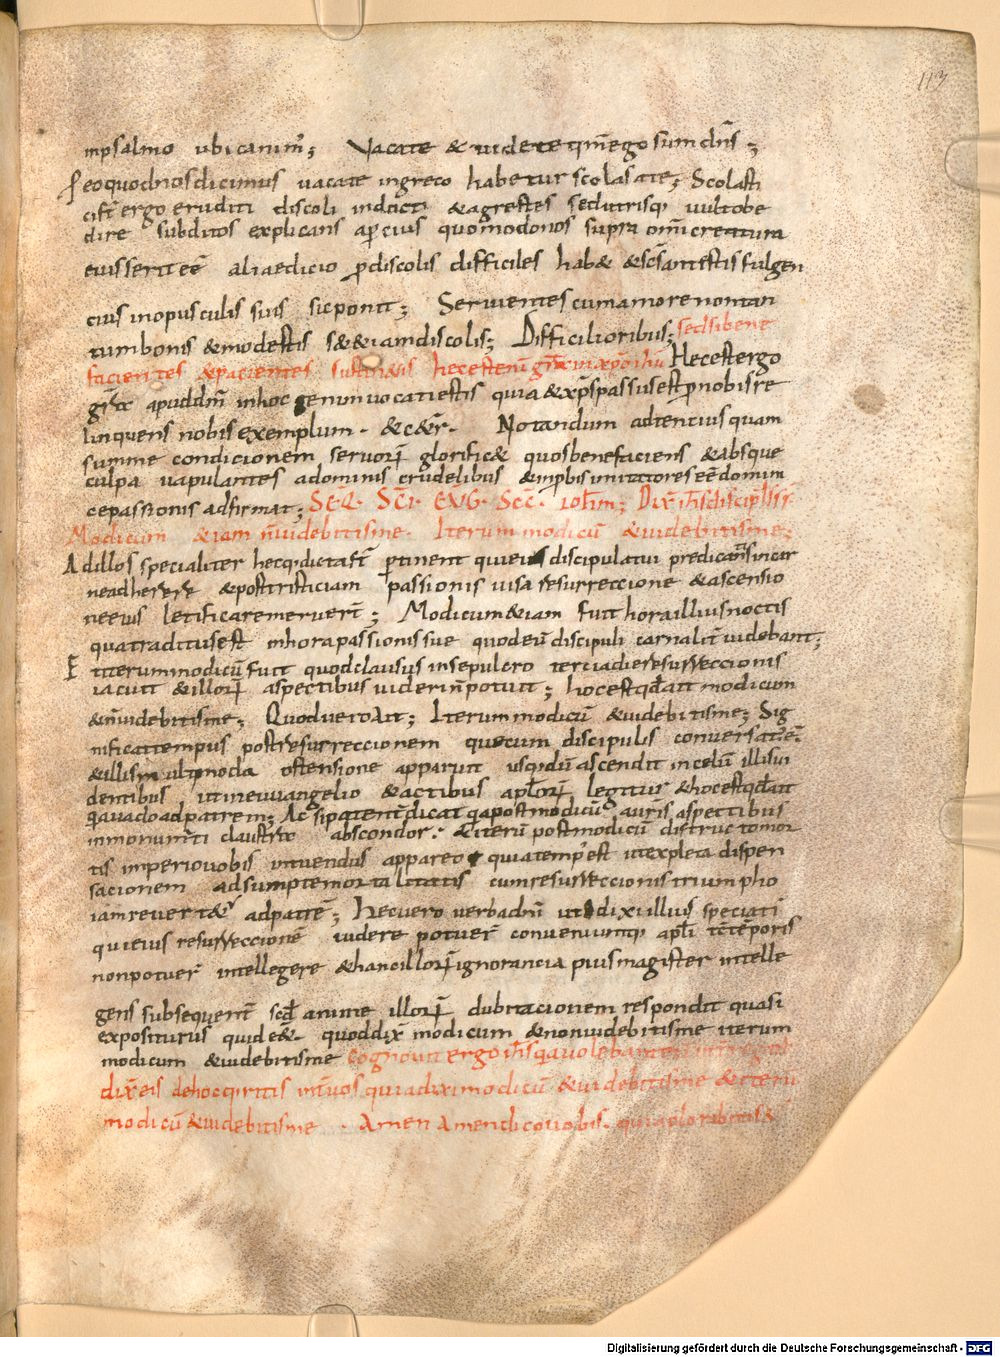 113
inpsalmo ubicanim̅; Vacate & uidete qm̅ego sum dn̅s;
eoquodnosdicimus uacate ingreco habetur scolasate; Scolasti
ci ergo eruditi discoli indocti & agrestes sed utrisq; uult obe
dire subditos explicans apercius quomodo nos supra om̅i creatura
eius serit ee̅ alia edicio ꝑdiscolis difficiles hab& & sc̅s antestis fulgen
cius inopusculis suis sic ponit; Seruientes cum amore non tan
tum bonis & modestis s& & iam discolis; Difficilioribus; sed si bene
facientes & pacientes sustin&is hec est eni̅ gr̅a in xp̅o ih̅u Hec est ergo
gr̅a apud dm̅ in hoc enim uocati estis quia & xp̅s passus est pro nobis re
linquens nobis exemplum. & c&r̅. Notandum adtentius quam
summe condicionem seruoru̅ glorific& quos benefaciens & absque
culpa uapulantes adominis crudelibus & inprobis imitatores ee̅ domini
ce passionis adfirmat; SEQ. SC̅I. EVG. SEC̅. IOH̅M; Dix̅ ih̅s discipulis s̅
Modicum & iam n̅ uidebitis me. Iterum modicu̅ & uidebitis me;
Ad illos specialiter hec q; dicta st̅ pertinent qui eius discipulatui predicantis in car
ne adherere & post tristiciam passionis uisa resurreccione & ascensio
ne eius letificare meruer̅; Modicum & iam fuit hora illius noctis
qua traditus est in hora passionis sue quo deu̅ discipuli carnalit̅ uidebant;
Et iterum modicu̅ fuit quod clausus in sepulcro tercia die resurreccionis
iacuit & illoru̅ aspectibus uideri n̅ potuit; hoc est qd̅ ait modicum
& n̅ uidebitis me; Quod uero ait; Iterum modicu̅ & uidebitis me; Sig
nificat tempus post resurreccionem quo cum discipulis conuersatus e̅.
& illis multimoda ostensione apparuit usq; du̅ ascendit in celu̅ illis ui
dentibus ut in euuangelio & actibus apl̅oru̅ legitur & hoc est qd̅ ait
q̅a uado ad patrem; Ac si patent̅ dicat q̅a post modicu̅ a ur̅is aspectibus
in monum̅ti claustro abscondor. & iteru̅ post modicu̅ distructo mor
tis imperio uobis intuendus appareo quia temp' est ut expleta dispen
sacionem adsumpte mortalitatis cum resurreccionis triumpho
iam reuertar ad patre̅; Hec uero uerba dn̅i ut dixi illius speciali
qui eius resurreccione̅ uidere potuer̅ conueniunt q; apl̅i te̅ te̅poris
non potuer̅ intellegere & hanc illoru̅ ignorancia pius magister intelle
gens subsequent̅ scd̅ anime illoru̅ dubitacionem respondit quasi
expositurus quid e& quod dix̅ modicum & non uidebitis me iterum
modicum & uidebitis me Cognouit ergo ih̅s q̅a uolebant
dix̅ eis de hoc q̅ritis int̅ uos quia dixi modicu̅ & uidebitis me & iteru̅
modicu̅ & uidebitis me. Amen Amen dico uobis. quia plorabitis &
Digitalisierung gefördert durch die Deutsche Forschungsgemeinschaft - DFG